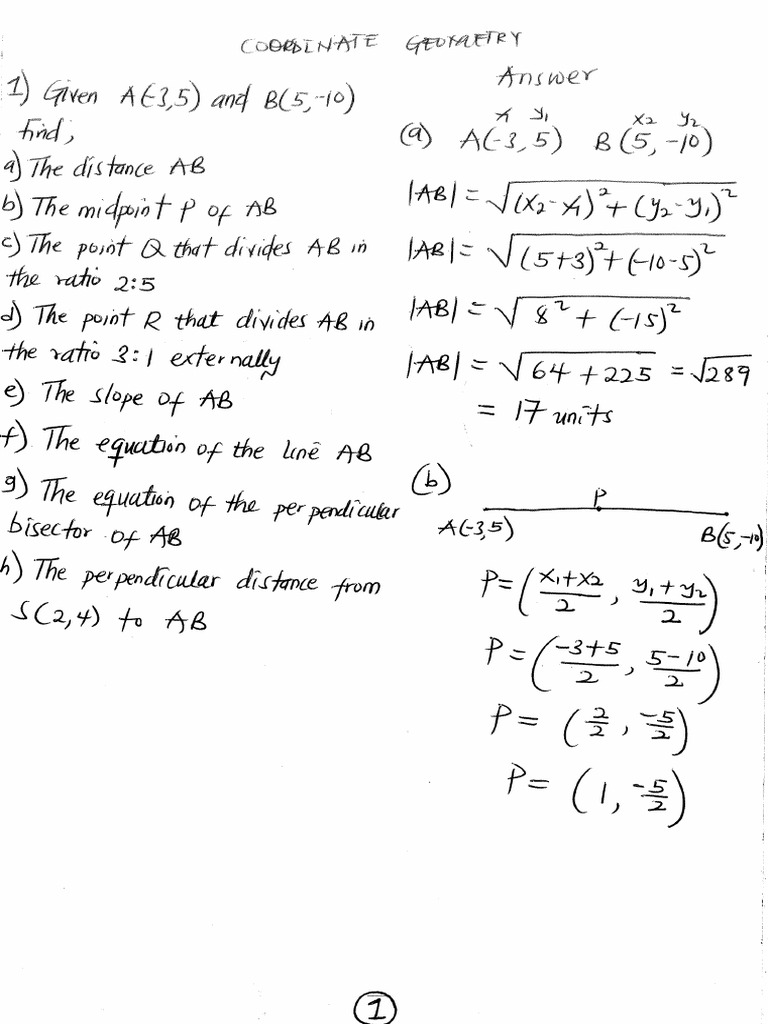 COORDINATE GEOMETRY
1) Given A(-3,5) and B(5,-10)
find;
a) The distance AB
b) The midpoint P of AB
c) The point Q that divides AB in
the ratio 2:5
d) The point R that divides AB in
the ratio 3:1 externally
e) The slope of AB
f) The equation of the line AB
g) The equation of the perpendicular
bisector of AB
h) The perpendicular distance from
S(2,4) to AB
Answer
x₁ y₁ x₂ y₂
(a) A(-3, 5) B(5, -10)
|AB| = √((x₂-x₁)²+(y₂-y₁)²)
|AB| = √((5+3)²+(-10-5)²)
|AB| = √(8² + (-15)²)
|AB| = √(64 + 225) = √289
= 17 units
(b)
P
A(-3,5) B(5,-10)
P = ((x₁+x₂)/2, (y₁+y₂)/2)
P = ((-3+5)/2, (5-10)/2)
P = (2/2, -5/2)
P = (1, -5/2)
1